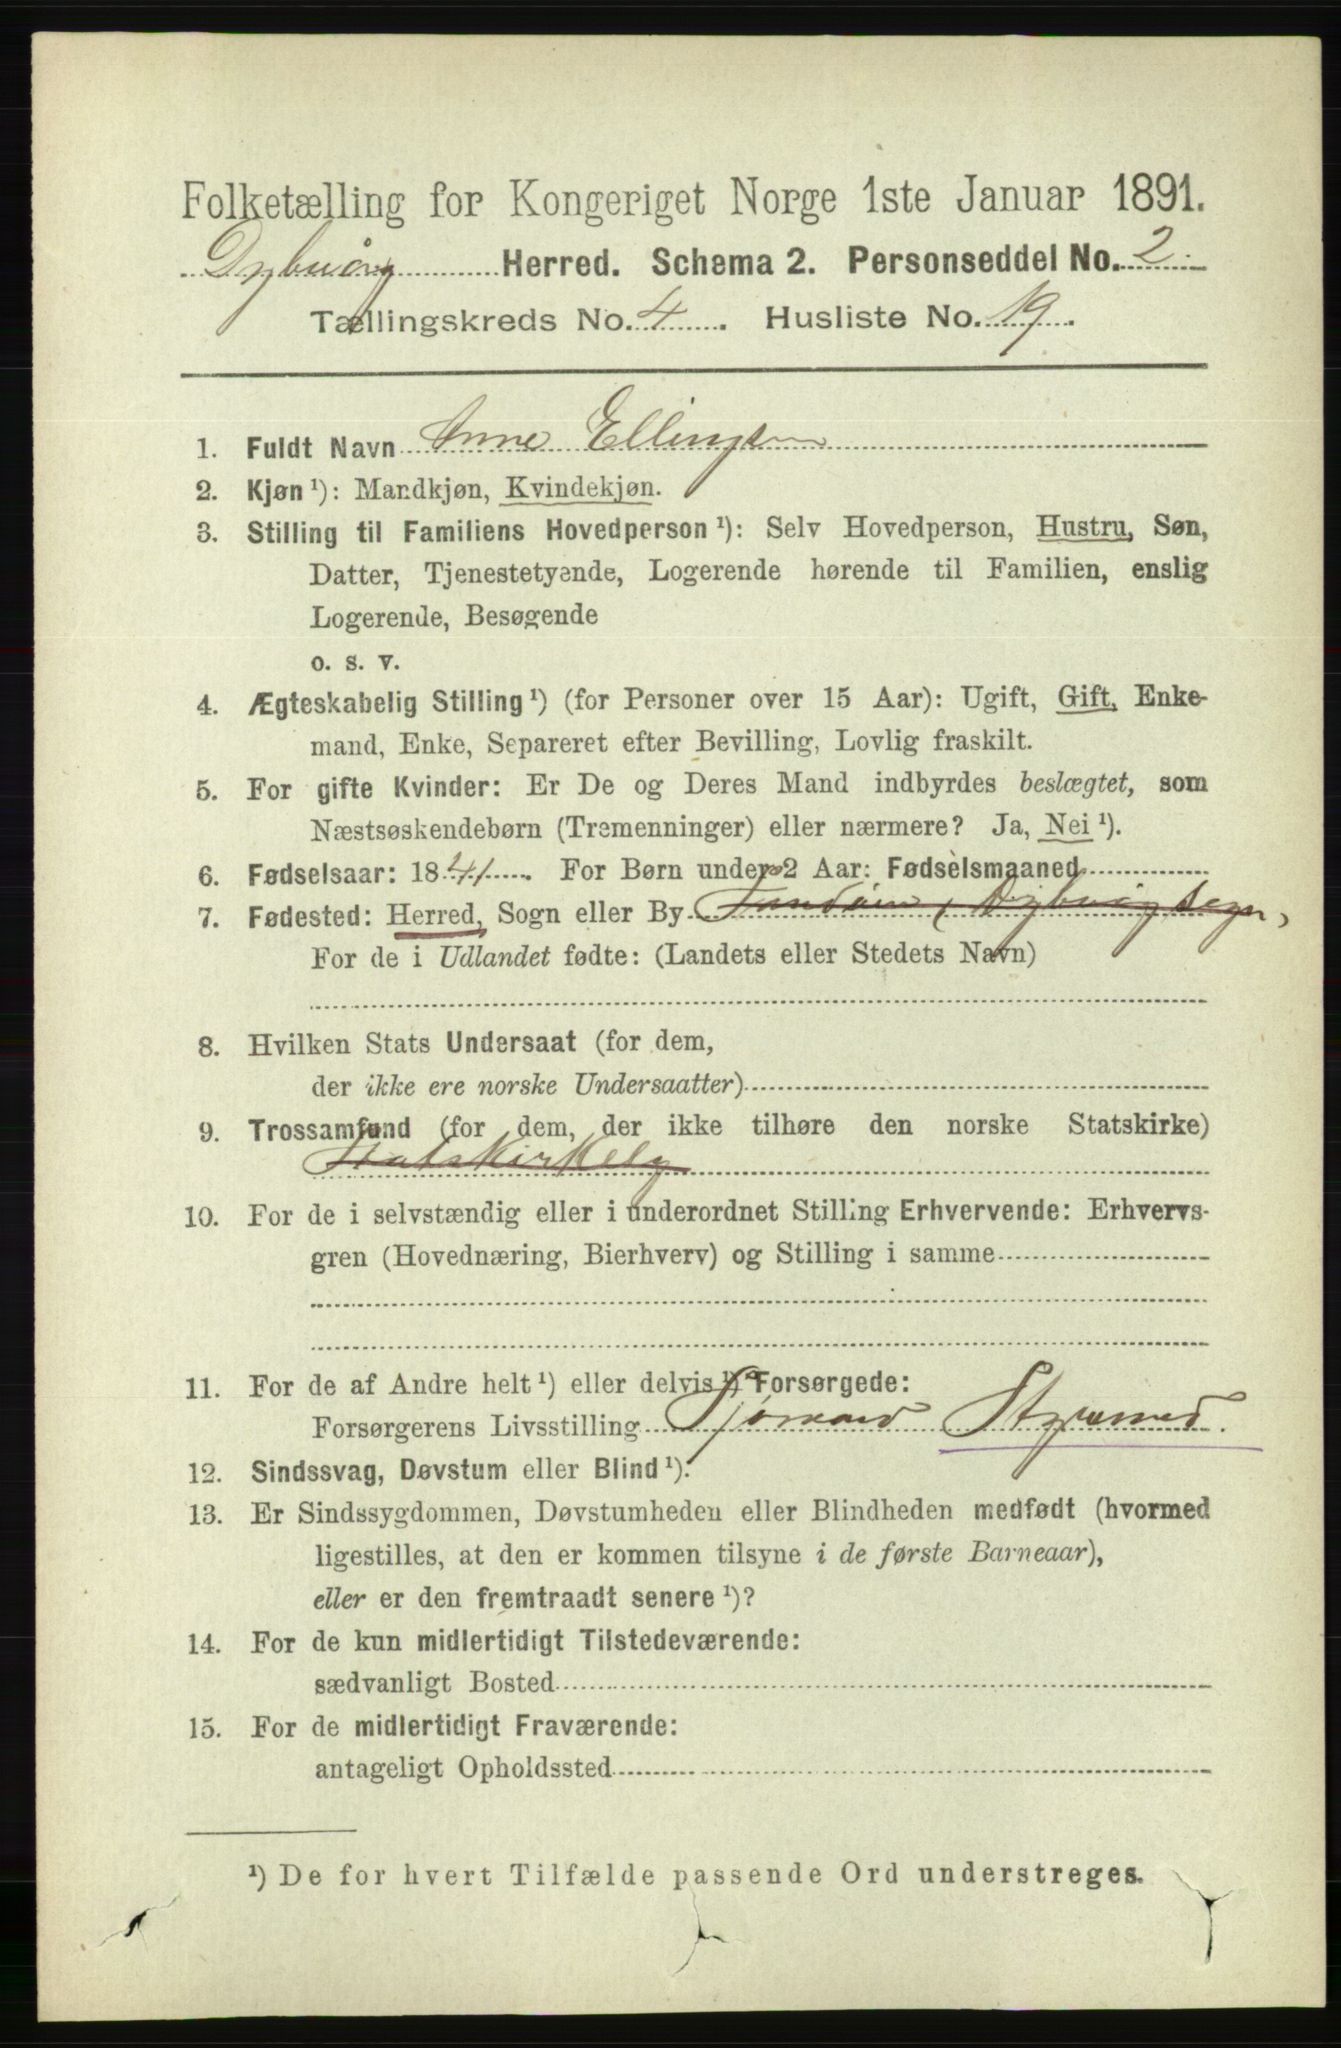 Folketælling for Kongeriget Norge 1ste Januar 1891.
Dybvåg Herred. Schema 2. Personseddel No. 2
Tællingskreds No. 4. Husliste No. 19.
1. Fuldt Navn Anne Ellingsen
2. Kjøn ¹): Mandkjøn, Kvindekjøn.
3. Stilling til Familiens Hovedperson ¹): Selv Hovedperson, Hustru, Søn,
Datter, Tjenestetyende, Logerende hørende til Familien, enslig
Logerende, Besøgende
o. s. v.
4. Ægteskabelig Stilling ¹) (for Personer over 15 Aar): Ugift, Gift, Enke-
mand, Enke, Separeret efter Bevilling, Lovlig fraskilt.
5. For gifte Kvinder: Er De og Deres Mand indbyrdes beslægtet, som
Næstsøskendebørn (Tremenninger) eller nærmere? Ja, Nei ¹).
6. Fødselsaar: 1841. For Børn under 2 Aar: Fødselsmaaned
7. Fødested: Herred, Sogn eller By Sandøen, Dybvåg Sogn,
For de i Udlandet fødte: (Landets eller Stedets Navn)
8. Hvilken Stats Undersaat (for dem,
der ikke ere norske Undersaatter)
9. Trossamfund (for dem, der ikke tilhøre den norske Statskirke)
Statskirkelig
10. For de i selvstændig eller i underordnet Stilling Erhvervende: Erhvervs-
gren (Hovednæring, Bierhverv) og Stilling i samme
11. For de af Andre helt ¹) eller delvis ¹) Forsørgede:
Forsørgerens Livsstilling Sjömand Styrmand.
12. Sindssvag, Døvstum eller Blind ¹).
13. Er Sindssygdommen, Døvstumheden eller Blindheden medfødt (hvormed
ligestilles, at den er kommen tilsyne i de første Barneaar),
eller er den fremtraadt senere ¹)?
14. For de kun midlertidigt Tilstedeværende:
sædvanligt Bosted
15. For de midlertidigt Fraværende:
antageligt Opholdssted
¹) De for hvert Tilfælde passende Ord understreges.